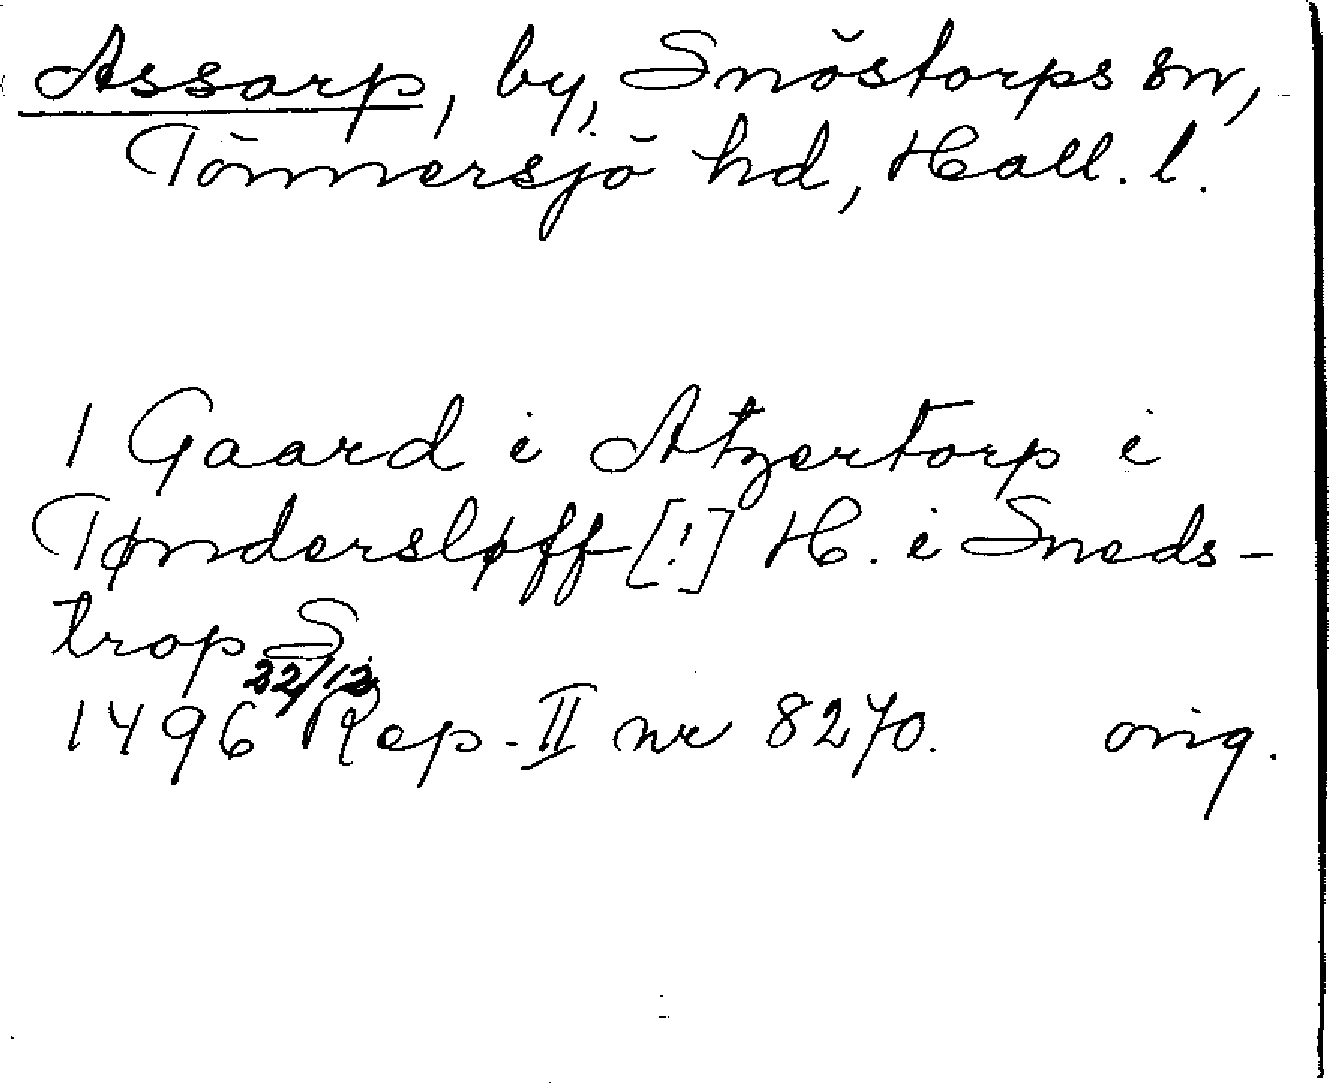 Assarp, by, Snöstorps sn,
Tönnersjö hd, Hall. l.
1 Gaard i Atzertorp i
Tøndersløff [!] H. i Sneds-
trop S
22/12
1496 Rep. II nr 8270. orig.